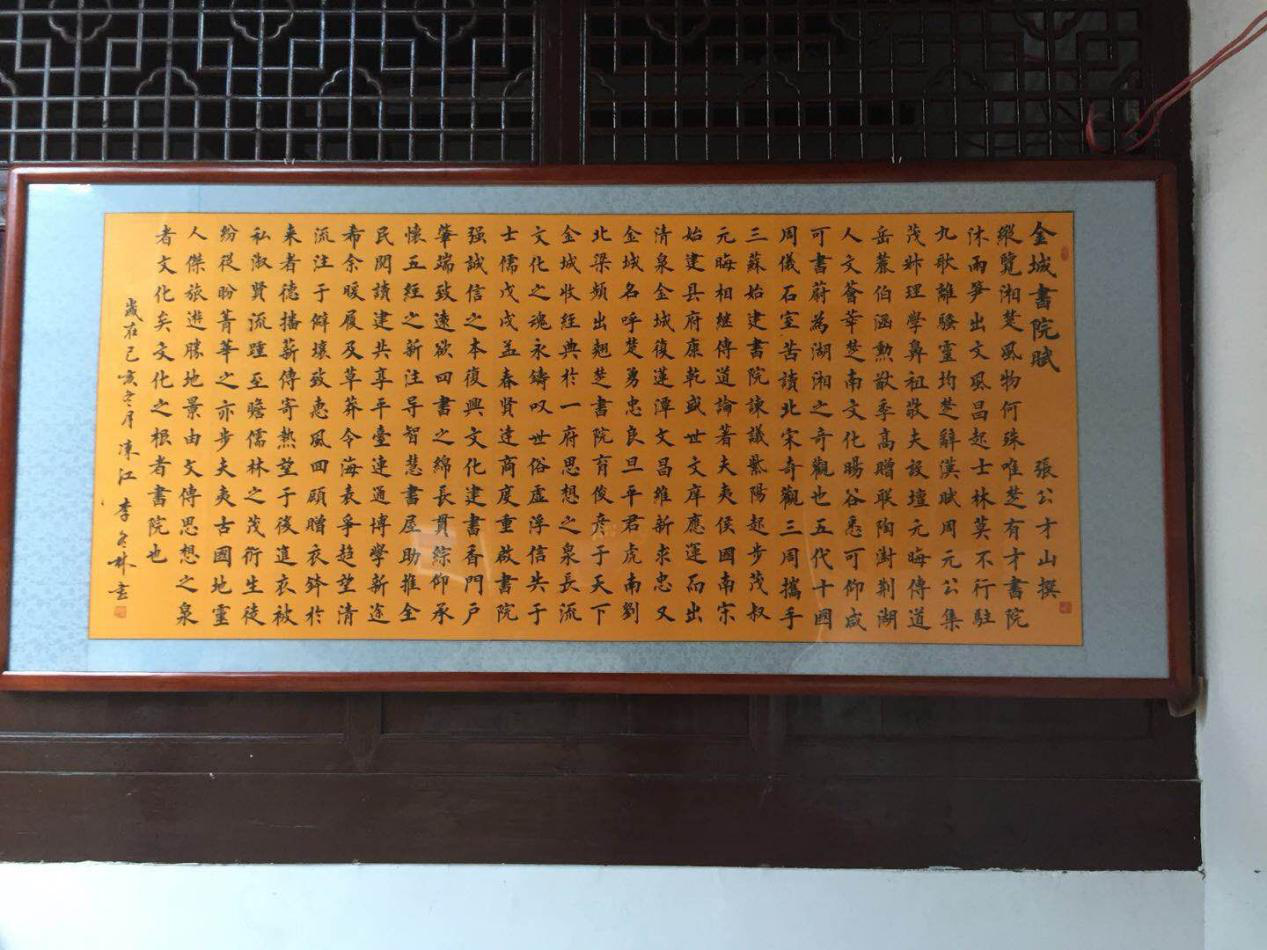 金城書院賦 張公才山撰
縱覽湘楚風物何殊唯楚有才書院
沐雨笋出文風昌起士林莫不行駐
九歌離騷靈均楚辭漢賦周元公集
茂姊理學鼻祖敬夫設壇元晦傳道
岳麓伯涵勲猷季高贈联陶澍荆湖
人文薈萃楚南文化暘谷悉可仰咸
可書蔚為湖湘之奇觀也五代十國
周儀石室苦讀北宋奇觀三周攜手
三蘇始建書院諫議紫陽起步茂叔
元晦相継傳道論著夫夷侯國南宋
始建具府康乾盛世文庠應運而出
清泉金城復蓮潭文昌維新求忠又
金城名呼楚勇忠良旦平君虎南劉
北梁頻出翘楚書院育俊彦于天下
金城收經典於一府思想之泉長流
文化之魂永鑄叹世俗虚浮信失于
士儒戊戌孟春賢達商度重啟書院
强誠信之本復興文化建書香門户
肇端致遠欲回書之綿長貫綜仰承
懷五經之新注导智慧書屋助推全
民閱讀建共享平臺連通博學新途
希余暖履及草莽令海表爭趋望清
流注于僻壤致惠風回顧贈衣鉢於
来者德播薪傳寄熱望于後進衣被
私淑賢流踵至瞻儒林之茂衍生徒
紛從盼菁華之亦步夫夷古國地靈
人傑旅遊勝地景由文傳思想之泉
者文化矣文化之根者書院也
歲在己亥冬月涷江李冬林書